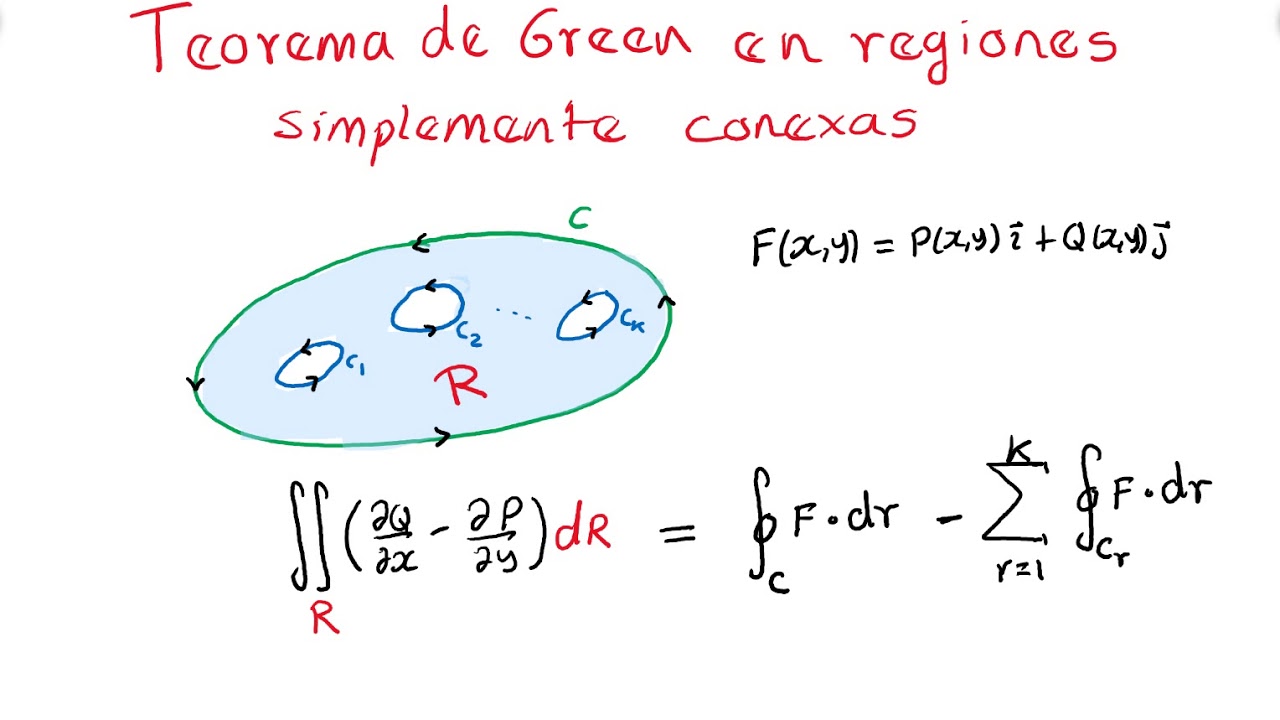 Teorema de Green en regiones
simplemente conexas
C
F(x,y) = P(x,y) i⃗ + Q(x,y) j⃗
C₂ ... Cₖ
C₁
R
∬_R (∂Q/∂x - ∂P/∂y) dR = ∮_C F·dr - ∑_{r=1}^{K} ∮_{C_r} F·dr